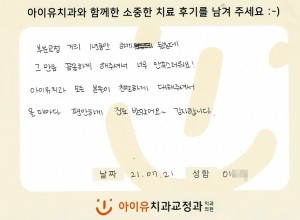 아이유치과와 함께한 소중한 치료 후기를 남겨 주세요 :-)
부분교정 거의 1년동안 하게 되었는데
그 만큼 꼼꼼하게 해주셔서 너무 만족스러워요!
아이유치과 모든 분들이 친절하게 대해주셔서
올 때마다 편안하게 진료 받았어요~ 감사합니다.
날짜 21.07.21 성함
아이유치과교정과 치과의원